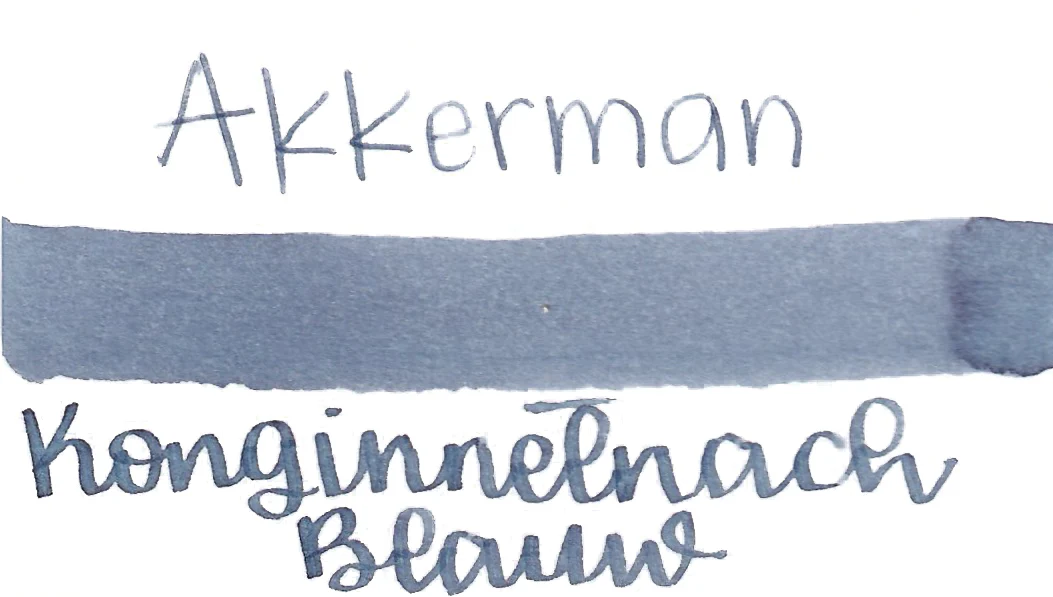 Akkerman
Konginnetnach
Blauw